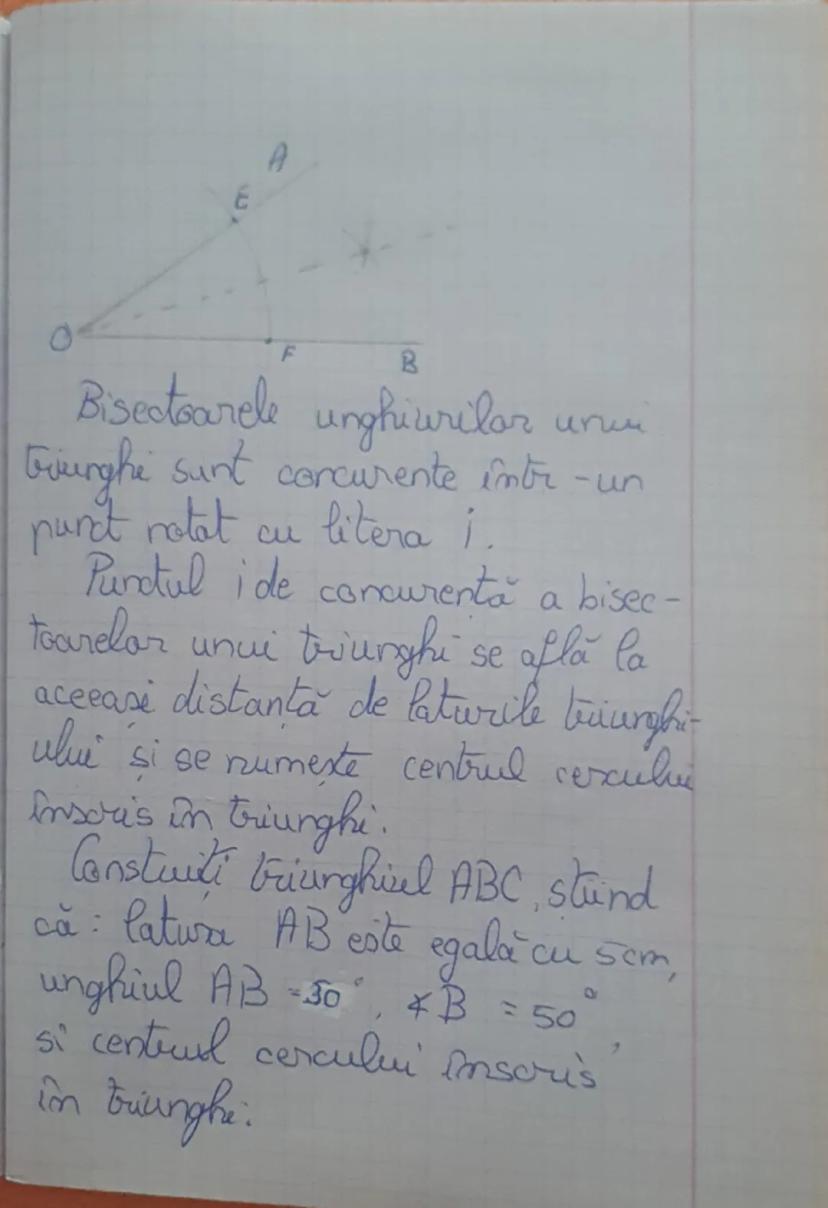 A
E
O
F
B
Bisectoarele unghiurilor unui
triunghi sunt concurente într-un
punct notat cu litera i.
Punctul i de concurență a bisec-
toarelor unui triunghi se află la
aceeași distanță de laturile triunghi-
ului și se numește centrul cercului
înscris în triunghi.
Constuiți triunghiul ABC, știind
că: latura AB este egală cu 5cm,
unghiul AB = 30°, ∢B = 50°,
si centrul cercului înscris
în triunghi.